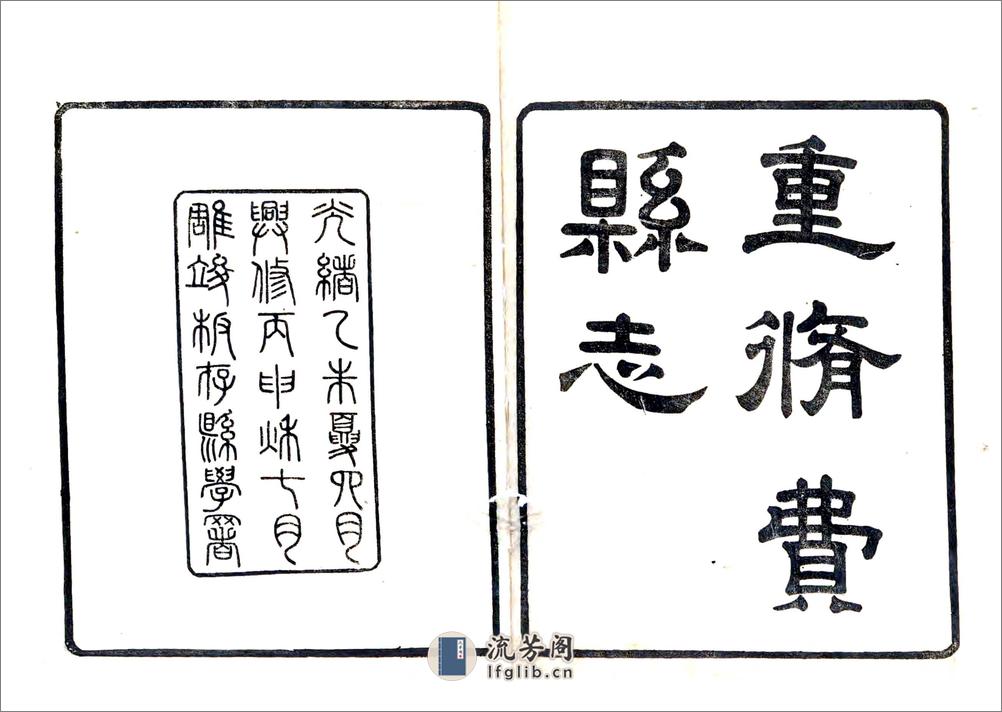 重脩費
縣志
光緒乙未夏四月
興修丙申秌七月
雕竣板存縣學署
流芳阁
lfglib.cn